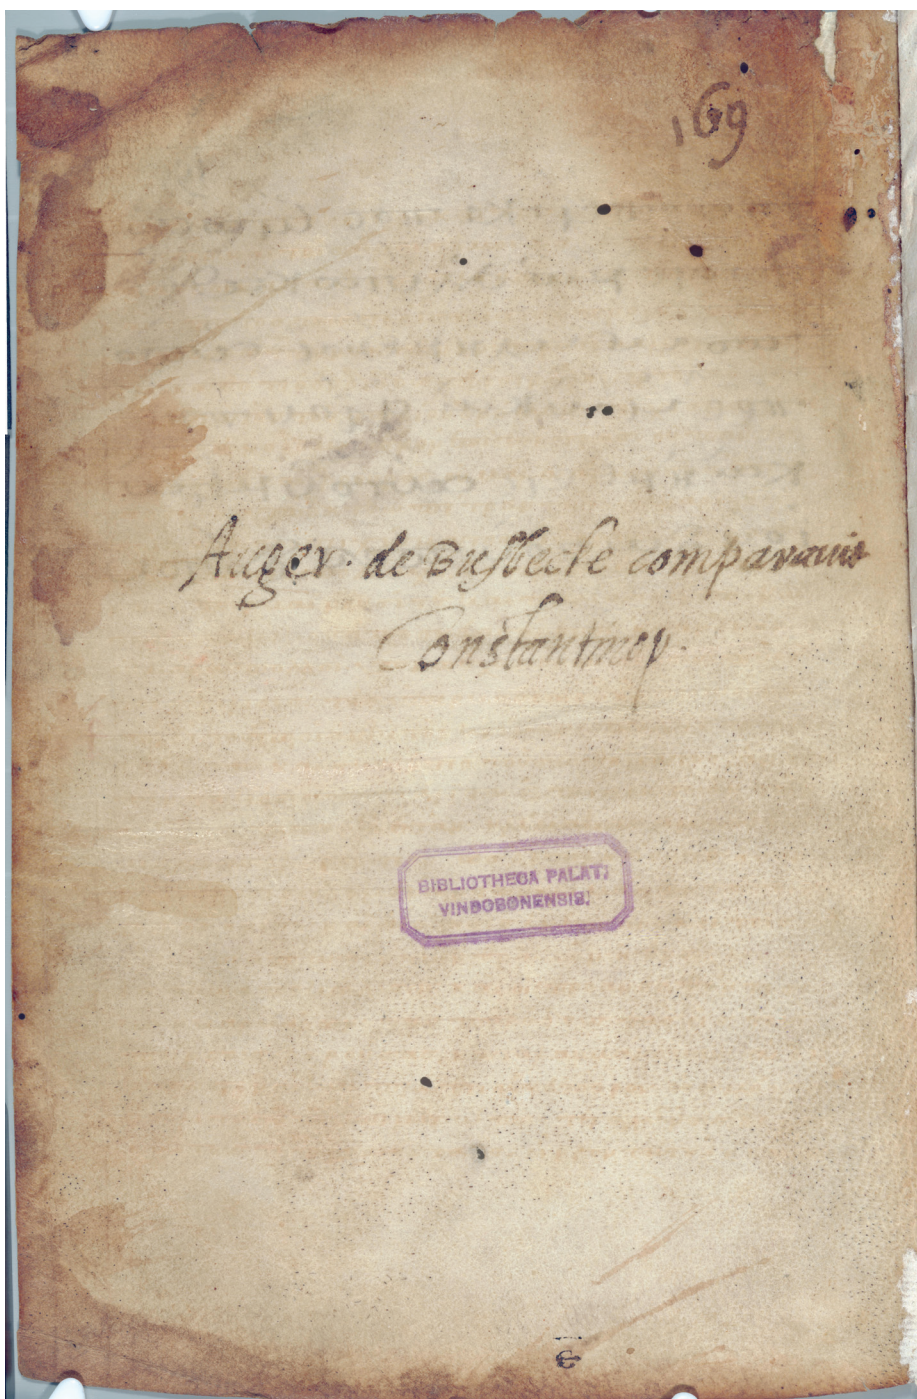 169
Auger. de Busbecke comparauit
Constantinop.
BIBLIOTHECA PALAT.
VINDOBONENSIS.
ε